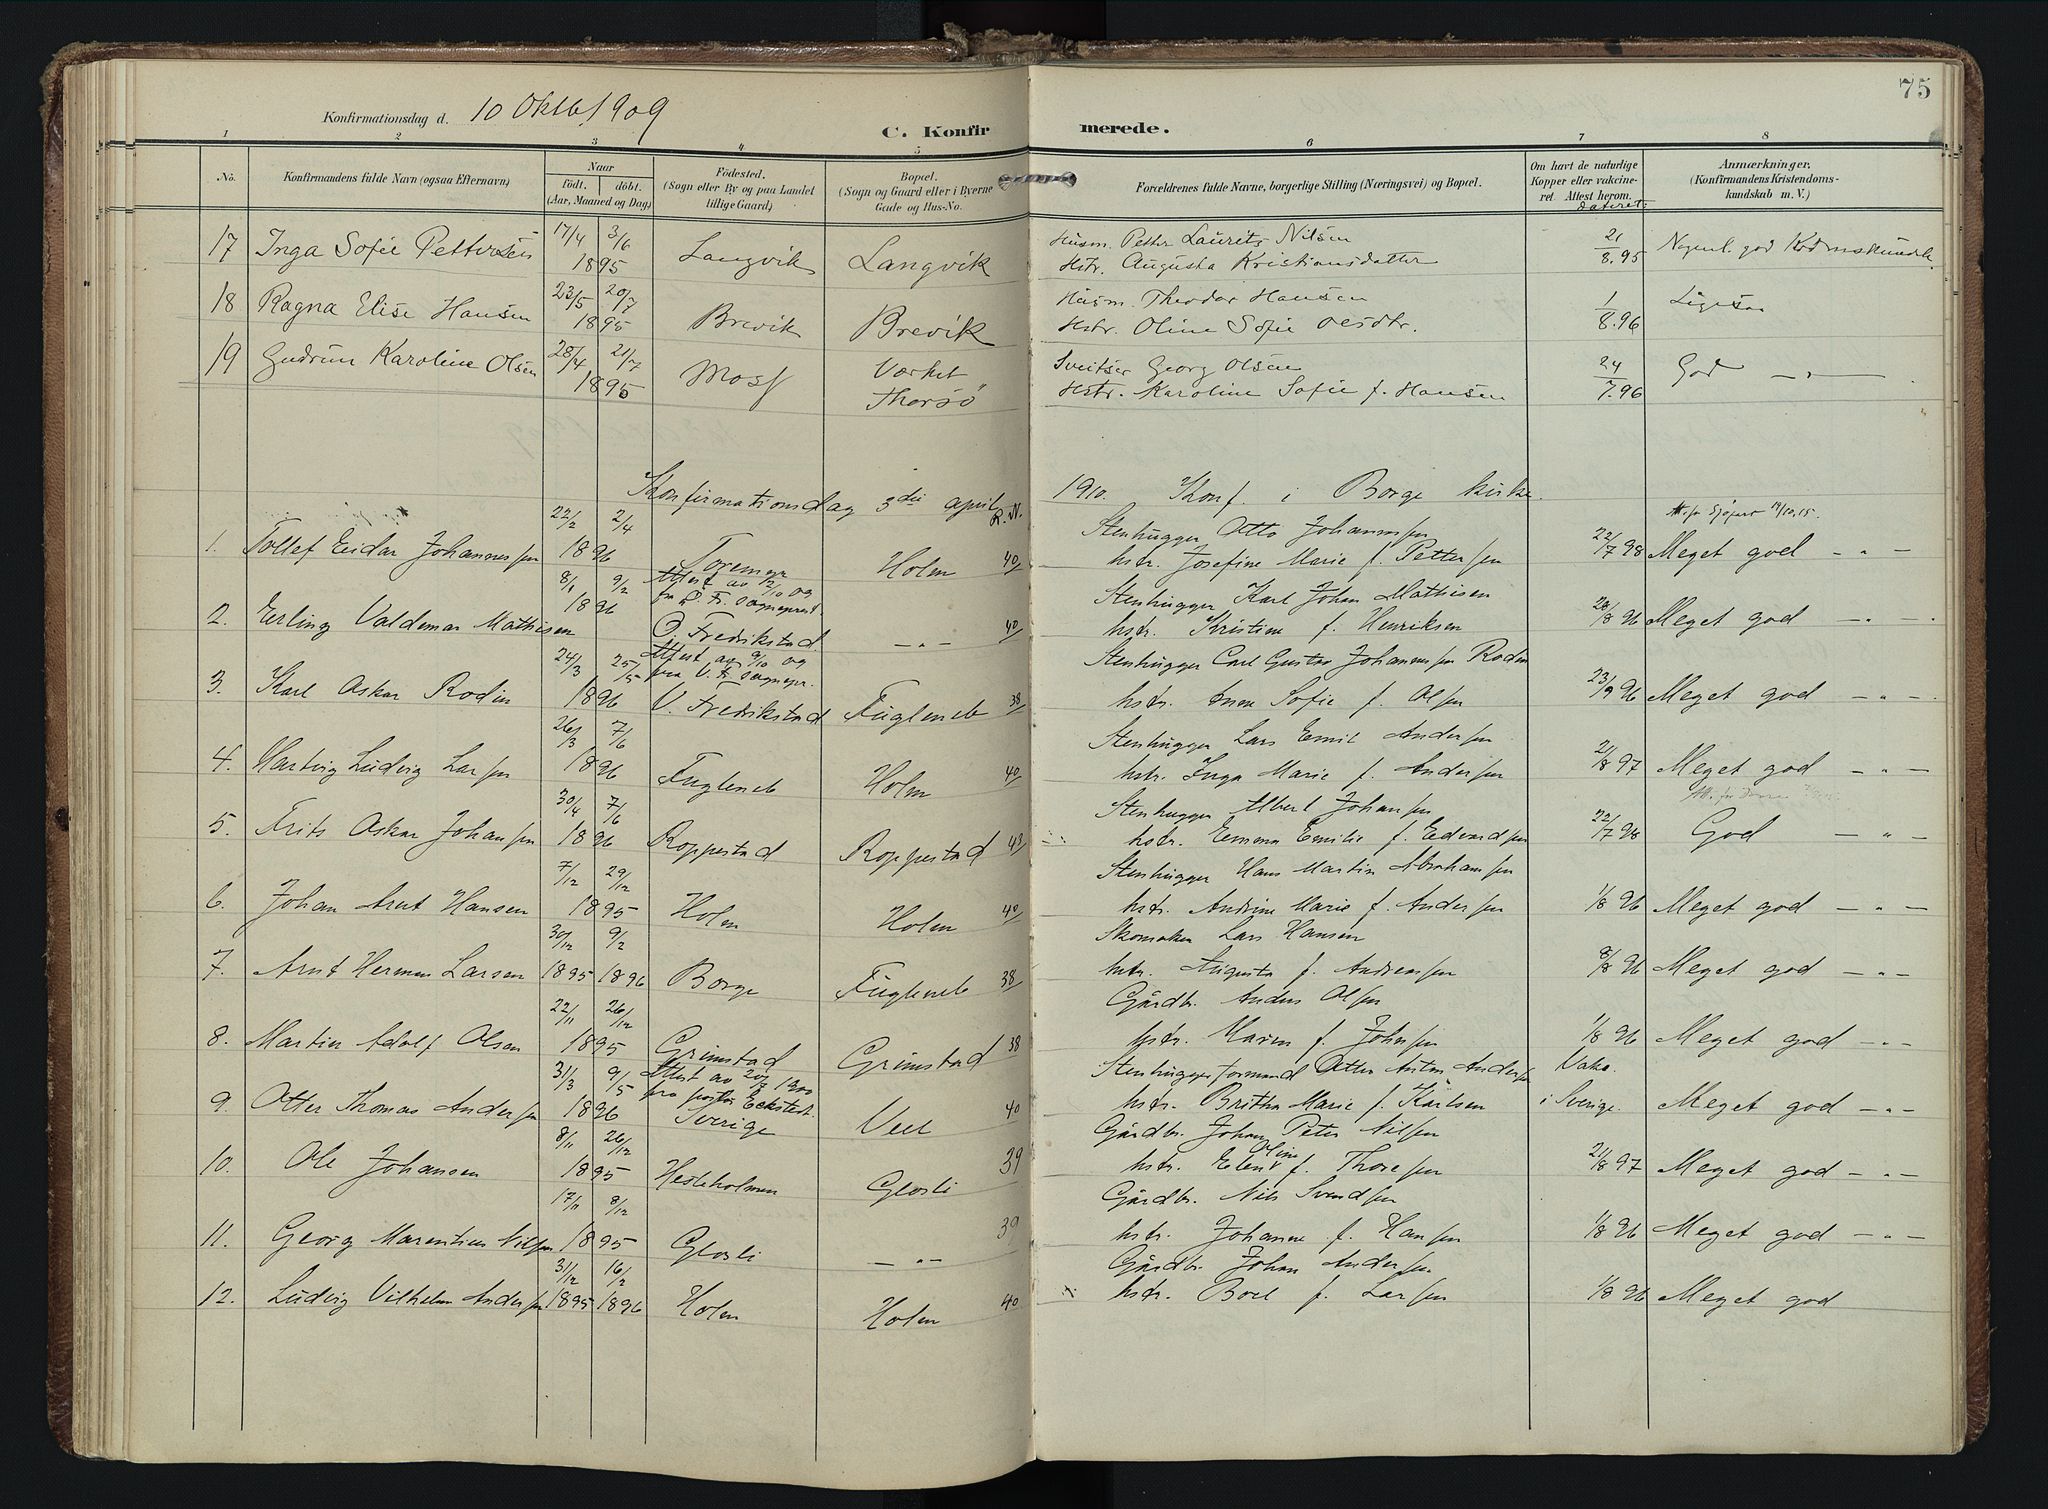 75
Konfirmationsdag d. 10 Oktbr 1909
C. Konfirmerede.
1 2 3 4 5 6 7 8
No.
Konfirmandens fulde Navn (ogsaa Efternavn)
Naar
født. døbt.
(Aar, Maaned og Dag)
Fødested.
(Sogn eller By og paa Landet
tillige Gaard)
Bopæl.
(Sogn og Gaard eller i Byerne
Gade og Hus-No.
Forældrenes fulde Navne, borgerlige Stilling (Næringsvei) og Bopæl.
Om havt de naturlige
Kopper eller vakcine-
ret. Attest herom.
dateret:
Anmærkninger.
(Konfirmandens Kristendoms-
kundskab m. V.)
17 Inga Sofie Pettersen 17/4 3/6 1895 Langvik Langvik Husm. Petter Laurits Nilsen
Hstr. Augusta Kristiansdatter 21/8.95 god
18 Ragna Elise Hansen 23/5 20/7 1895 Brevik Brevik Husm. Theodor Hansen
Hstr. Oline Sofie Olsdtr. 1/8.96 Ligesaa
19 Gudrun Karoline Olsen 28/4 21/7 1895 Moss Værket
Thorsø Sveitser Georg Olsen
Hstr. Karoline Sofie f. Hansen 24/7.96 God — " —
Konfirmationsdag 3die april 1910. Konf. i Borge kirke.
R. N.
Att. for Sjøfart 19/10.15.
1. Tollef Eidar Johannessen 22/2 2/4 1896 Toremyr Holm 40 Stenhugger Otto Johannssen
hstr. Josefine Marie f. Pettersen 22/7 98 Meget god — " —
2. Erling Valdemar Mathisen 8/1 9/2 1896 Attest av 12/10 09
fra Ø. Fr. sogneprest
Ø. Fredrikstad. — " — 40 Stenhugger Karl Johan Mathisen
hstr. Kristine f. Henriksen 28/8 96 Meget god — " —
3. Karl Oskar Rodin 24/3 25/5 1896 Attest av 9/10 09
fra V. Fr. sognepr.
V. Fredrikstad Fugleneb 38 Stenhugger Carl Gustav Johannssen Rodin
hstr. Sofie f. Olsen 23/9 96 Meget god — " —
4. Hartvig Ludvig Larsen 26/3 7/6 1896 Fugleneb Holm 40 Stenhugger Lars Emil Andersen
hstr. Inga Marie f. Andersen 21/8 97 Meget god — " —
5. Frits Oskar Johansen 30/4 7/6 1896 Roppestad Roppestad 43 Stenhugger Albert Johansen
hstr. Emma Emilie f. Edvardsen 22/7 98 God — " —
6. Johan Arnt Hansen 7/12 29/12 1895 Holm Holm 40 Stenhugger Hans Martin Abrahamsen
hstr. Andrine Marie f. Andersen 1/8 96 Meget god — " —
7. Arnt Herman Larsen 30/12 9/2 1895 1896 Borge Fugleneb 38 Skomaker Lars Hansen
hstr. Augusta f. Andreassen 8/8 96 Meget god — " —
8. Martin Adolf Olsen 22/11 26/12 1895 Grimstad Grimstad 38 Gårdbr. Anders Olsen
hstr. Maren f. Johnsen 1/8 96 Meget god — " —
9. Otter Thomas Andersen 31/3 9/5 1896 Attest av 20/3 1900
fra pastor Eckstedt
Sverige Veel 40 Stenhuggerformand Otter Anton Andersen
hstr. Britha Marie f. Karlsen Vakc.
i Sverige. Meget god — " —
10. Ole Johansen 8/11 26/12 1895 Hesteholmen Glosli 39 Gårdbr. Johan Peter Nilsen
hstr. Elen Oline f. Thoresen 21/8 97 Meget god — " —
11. Georg Marentius Nilsen 17/11 8/12 1895 Glosli — " — 39 Gårdbr. Nils Svendsen
hstr. Johanne f. Hansen 1/8 96 Meget god — " —
12. Ludvig Vilhelm Andersen 31/12 16/2 1895 1896 Holm Holm 40 Gårdbr. Johan Andersen
hstr. Boel f. Larsen 1/8 96 Meget god